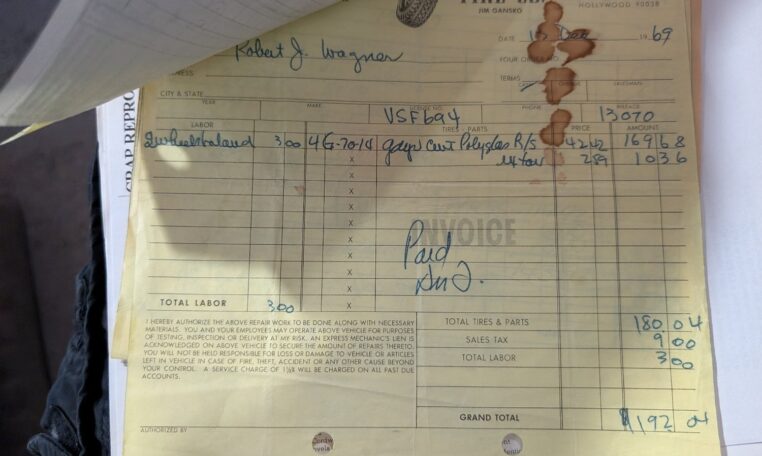 JIM GANSKO
HOLLYWOOD 90038
DATE 13 Dec 1969
Robert J. Wagner
YOUR ORDER NO.
TERMS
SALESMAN
CITY & STATE
YEAR MAKE LICENSE NO. PHONE MILEAGE
VSF694 13070
LABOR TIRES - PARTS PRICE AMOUNT
2 wheel balance 3 00 4 G-70-14 R/S 42 42 169 68
X 2 59 10 36
X
X
X
X
INVOICE
X
Paid
X
X
X
TOTAL LABOR 3 00 X
I HEREBY AUTHORIZE THE ABOVE REPAIR WORK TO BE DONE ALONG WITH NECESSARY
MATERIALS. YOU AND YOUR EMPLOYEES MAY OPERATE ABOVE VEHICLE FOR PURPOSES
OF TESTING, INSPECTION OR DELIVERY AT MY RISK. AN EXPRESS MECHANIC'S LIEN IS
ACKNOWLEDGED ON ABOVE VEHICLE TO SECURE THE AMOUNT OF REPAIRS THERETO.
YOU WILL NOT BE HELD RESPONSIBLE FOR LOSS OR DAMAGE TO VEHICLE OR ARTICLES
LEFT IN VEHICLE IN CASE OF FIRE, THEFT, ACCIDENT OR ANY OTHER CAUSE BEYOND
YOUR CONTROL. A SERVICE CHARGE OF 1½% WILL BE CHARGED ON ALL PAST DUE
ACCOUNTS.
TOTAL TIRES & PARTS 180 04
SALES TAX 9 00
TOTAL LABOR 3 00
GRAND TOTAL $192 04
AUTHORIZED BY